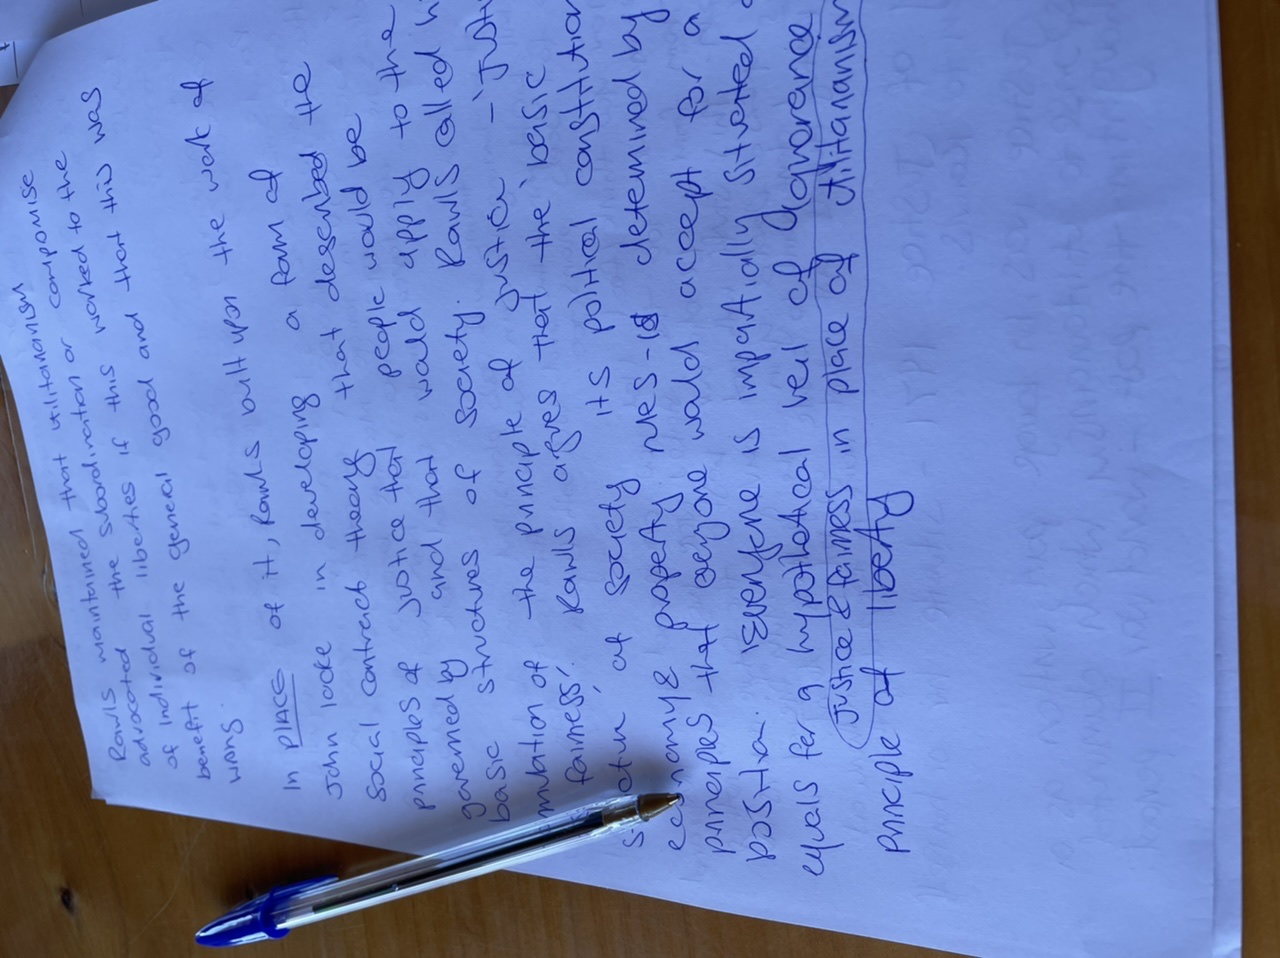 Rawls maintained that utilitarianism
advocated the subordination or compromise
of individual liberties if this worked to the
benefit of the general good and that this was
wrong.
In PLACE of it, Rawls built upon the work of
John locke in developing a form of
social contract theory that described the
principles of justice that people would be
governed by and that would apply to the
basic structures of society. Rawls called h
mulation of the principle of justice - 'Justi
fairness'. Rawls argues that the 'basic
ctin' of society its political constitution
economy & property rules - is determined by
principles that anyone would accept for a
position. Everyone is impartially situated
equals for a hypothetical veil of ignorance
Justice & fairness in place of utilitarianism
principle of liberty